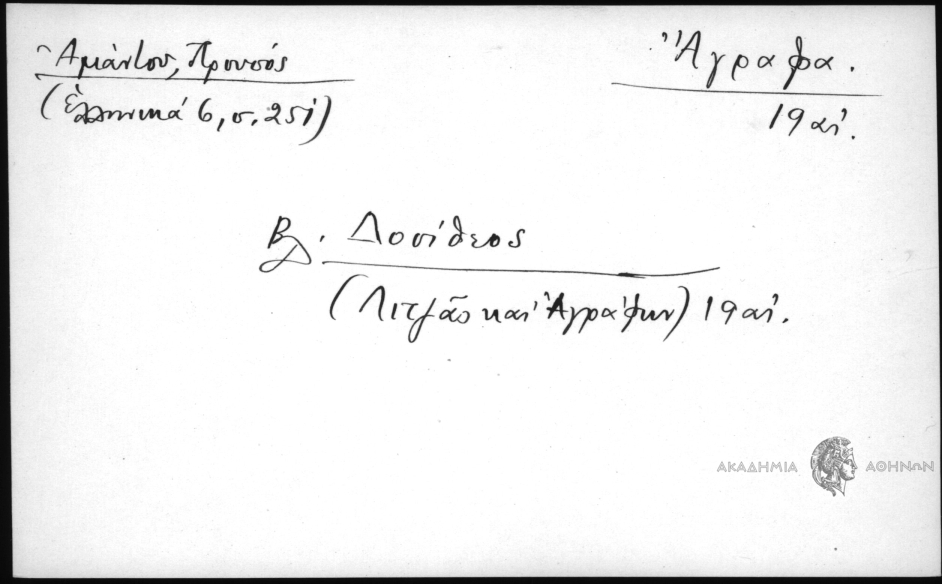 Ἀμάντου, Προυσός
(Ἑλληνικά 6, σ. 251)
Ἄγραφα.
19 αἰ.
Βλ. Δοσίθεος
(Λιτζᾶς καὶ Ἀγράφων) 19 αἰ.
ΑΚΑΔΗΜΙΑ ΑΘΗΝΩΝ